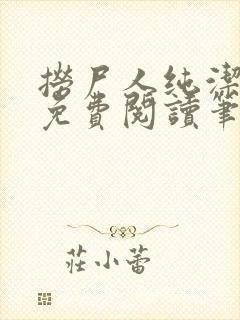 撈尸人純潔
免費閱讀筆
莊小蕾